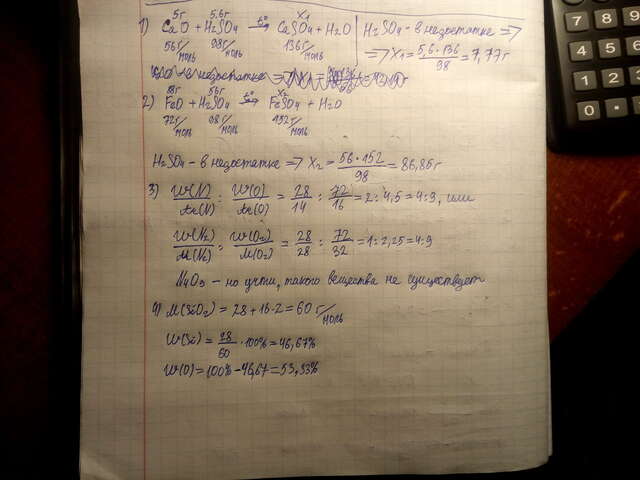 5г 5,6г t° X₁
1) CaO + H₂SO₄ → CaSO₄ + H₂O | H₂SO₄ - в недостатке ⇒
56 г/моль 98 г/моль 136 г/моль ⇒ X₁ = 5,6·136/98 = 7,77г
56г t° X₂
2) FeO + H₂SO₄ → FeSO₄ + H₂O
72 г/моль 98 г/моль 152 г/моль
H₂SO₄ - в недостатке ⇒ X₂ = 56·152/98 = 86,85г
3) W(N)/Ar(N) : W(O)/Ar(O) = 28/14 : 72/16 = 2:4,5 = 4:9, или
W(N₂)/M(N₂) : W(O₂)/M(O₂) = 28/28 : 72/32 = 1:2,25 = 4:9
N₄O₉ - но учти, такого вещества не существует
4) M(SiO₂) = 28 + 16·2 = 60 г/моль
W(Si) = 28/60 · 100% = 46,67%
W(O) = 100% - 46,67 = 53,33%
7 8 9
4 5 6
1 2 3
0